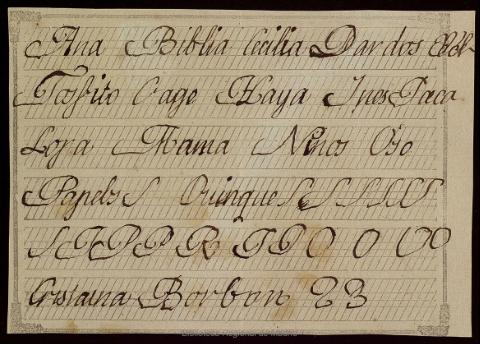 Ana Biblia Cecilia Dardos
Gago Haya Ines Paca
Lora Mama Ninos Oso
Papeles S Quinque S S S S S S
S T P P R T P O O O O
Cristaina Borbon 2 3